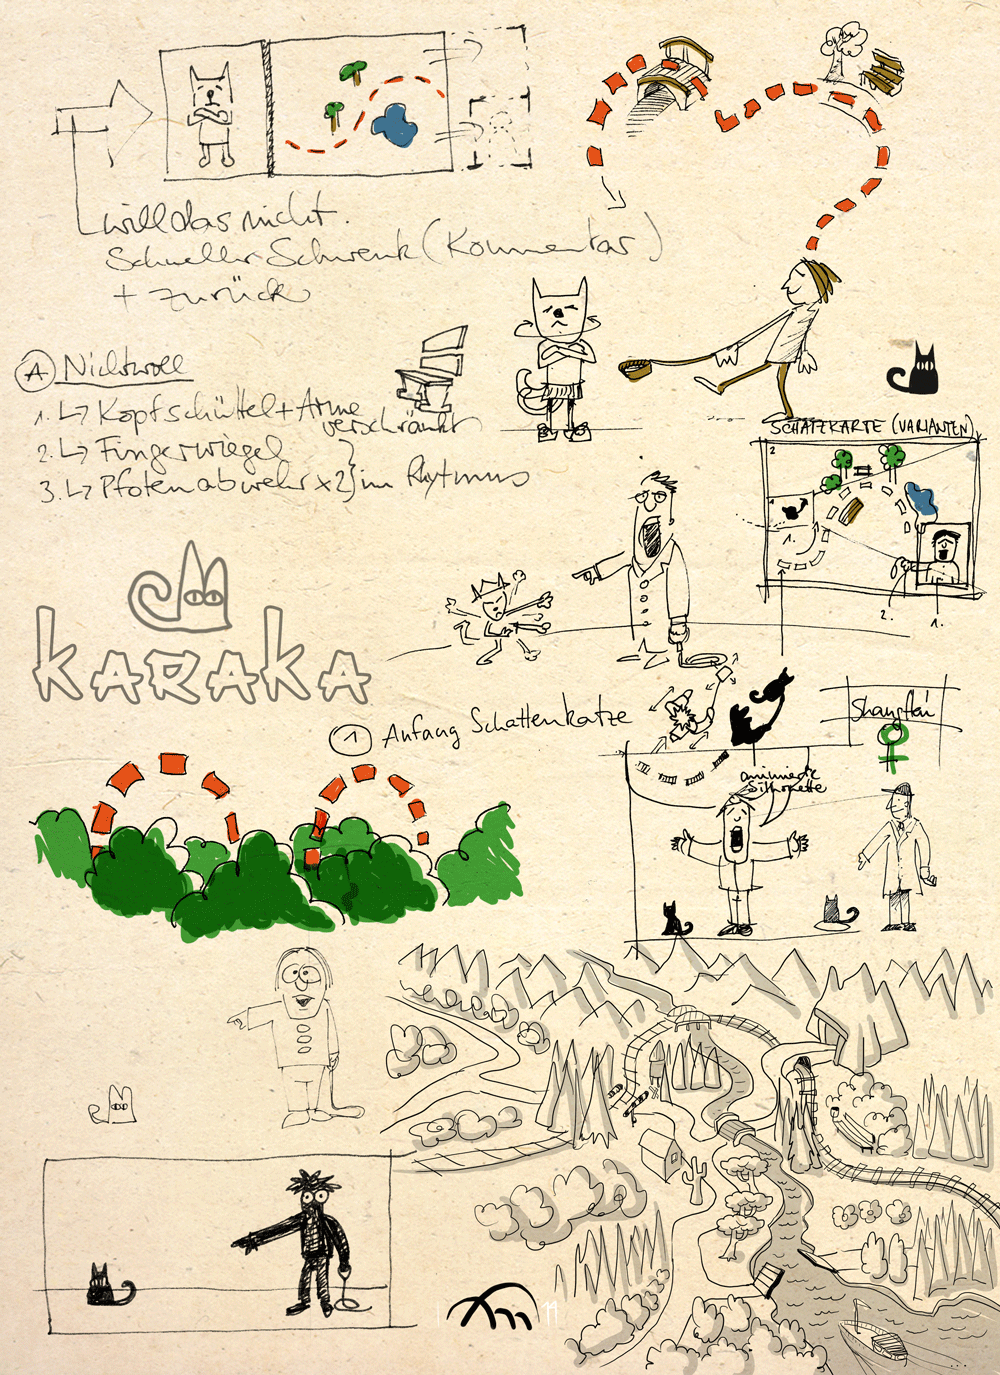 will das nicht.
Schneller Schwenk (Kommentar)
+ zurück
A Nichtwoll
1. ↳ Kopfschüttel + Arme
verschränkt
2. ↳ Fingerwiegel
3. ↳ Pfotenabwehr x2 } im Rhytmus
SCHATZKARTE (VARIANTEN)
2
1
1.
2.
1.
KARAKA
1 Anfang Schattenkatze
animierte
Silhouette